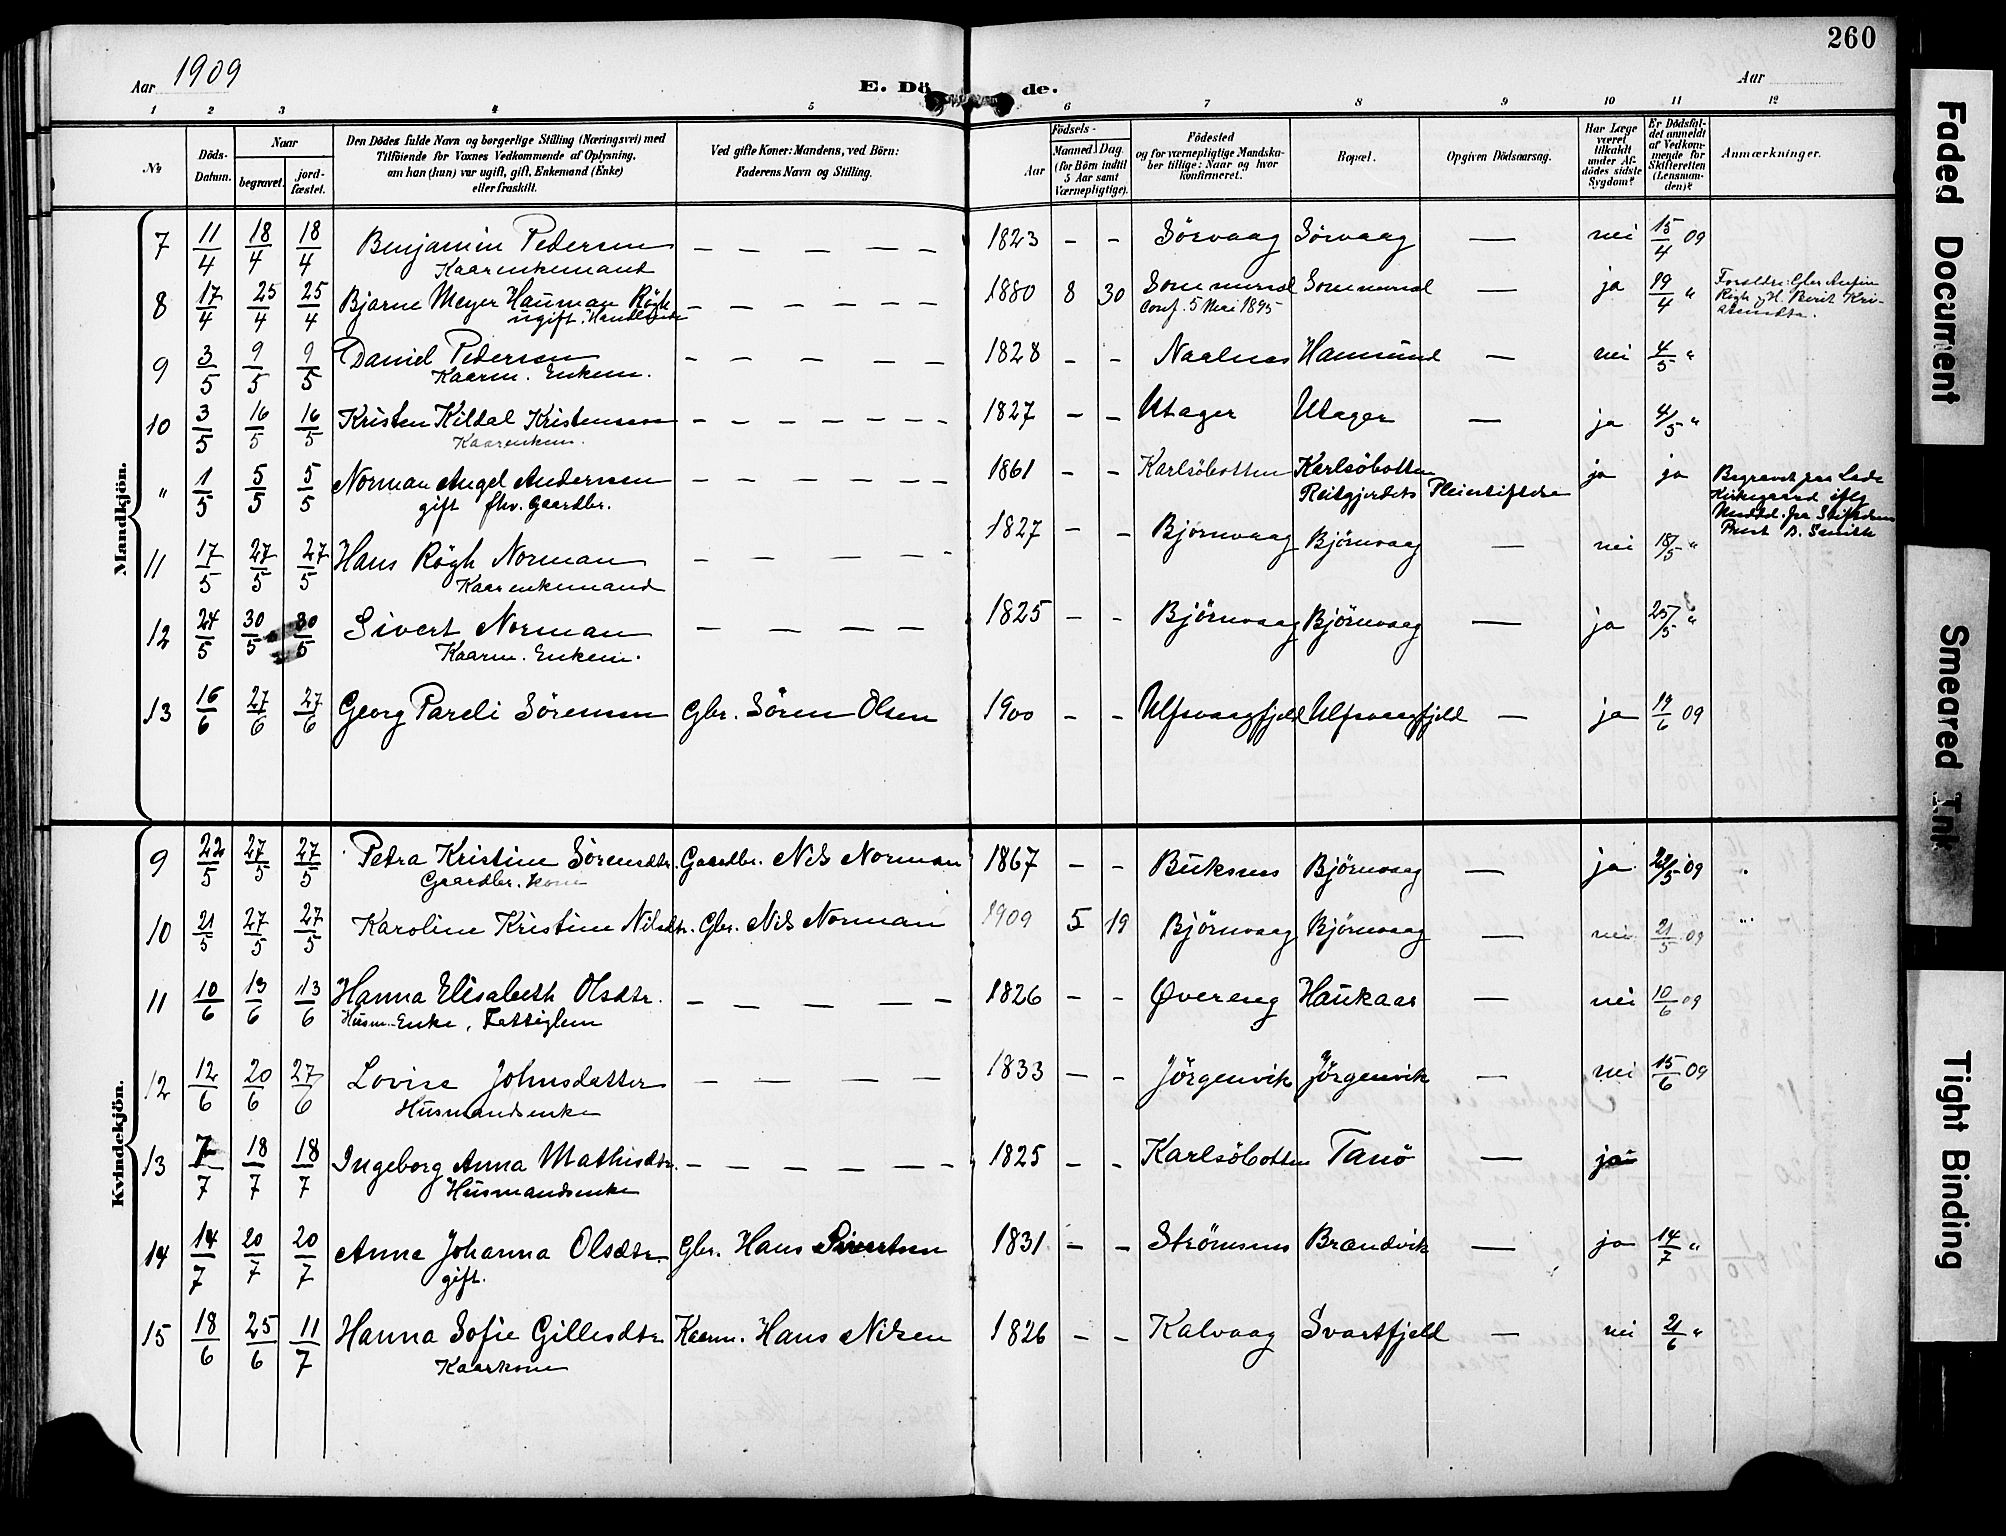 260
Aar 1909
E. Dö de.
Aar
1 2 3 4 5 6 7 8 9 10 11 12
№ Döds-Datum. Naar begravet. jord-fæstet. Den Dödes fulde Navn og borgerlige Stilling (Næringsvei) med Tilföiende for Voxnes Vedkommende af Oplysning, om han (hun) var ugift, gift, Enkemand (Enke) eller fraskilt. Ved gifte Koner: Mandens, ved Börn: Faderens Navn og Stilling. Födsels- Aar Maaned Dag (for Börn indtil 5 Aar samt Værnepligtige). Födested og for værnepligtige Mandskaber tillige: Naar og hvor konfirmeret. Bopæl. Opgiven Dödsaarsag. Har Læge været tilkaldt under Afdödes sidste Sygdom? Er Dödsfaldet anmeldt af Vedkommende for Skifteretten (Lensmanden)? Anmærkninger.
Mandkjön.
7 11/4 18/4 18/4 Benjamin Pedersen — — — — — 1823 - - Sörvaag Sörvaag — nei 15/4 09
Kaarenkemand
8 17/4 25/4 25/4 Bjarne Meyer Hauman Rögh — — — — — 1880 8 30 Sommersel Sommersel — ja 19/4 "
ugift. Conf. 5 Mai 1895
9 3/5 9/5 9/5 Daniel Pedersen — — — — — 1828 - - Naalnes Hamsund — nei 4/5 "
Kaarm. Enkem.
10 3/5 16/5 16/5 Kristen Kildal Kristensen — — — — — — 1827 - - Utager Utager — ja 4/5 "
Kaarenkem.
" 1/5 5/5 5/5 Norman Angel Andersen — — — — — — 1861 - - Karlsöbotten Karlsöbotten ja ja Begravet paa Lade
gift fhv. Gaardbr. Reitgjerdets Pleiestiftelse Kirkegaard iflg
11 17/5 27/5 27/5 Hans Rögh Norman — — — — 1827 - - Bjornvaag Björnvaag — nei 18/5 "
Kaarenkemand
12 24/5 30/5 30/5 Sivert Norman — — — — 1825 - - Björnvaag Björnvaag — ja 25/5 "
Kaarm. Enkem.
13 16/6 27/6 27/6 Georg Pareli Sörensen Gbr. Sören Olsen 1900 - - Ulfsvaagfjeld Ulfsvaagfjeld — ja 19/6 09
Kvindekjön.
9 22/5 27/5 27/5 Petra Kristine Sörensdtr. Gaardbr. Nils Norman 1867 - - Buksnes Björnvaag — ja 22/5 09
Gaardbr. kone
10 21/5 27/5 27/5 Karoline Kristine Nilsdtr. Gbr. Nils Norman 1909 5 19 Björnvaag Björnvaag — nei 21/5 09
11 10/6 13/6 13/6 Hanna Elisabeth Olsdtr. — — — — — 1826 - - Øvereeg Haukaas — nei 10/6 09
Husm. Enke, Fattiglem
12 12/6 20/6 27/6 Lovise Johnsdatter — — — — — 1833 - - Jörgenvik Jörgenvik — nei 15/6 09
Husmandsenke
13 7/7 18/7 18/7 Ingeborg Anna Mathisdtr. — — — — — 1825 - - Karlsöbotten Tanö — ja
Husmandsenke
14 14/7 20/7 20/7 Anne Johanna Olsdtr. Gbr. Hans Sivertsen 1831 - - Strömsnes Brandvik — ja 14/7 "
gift.
15 18/6 25/6 11/7 Hanna Sofie Gillesdtr Kaarm. Hans Nilsen 1826 - - Kalvaag Svartfjeld — nei 21/6 "
Kaarkone
Faded Document
Smeared Ink
Tight Binding